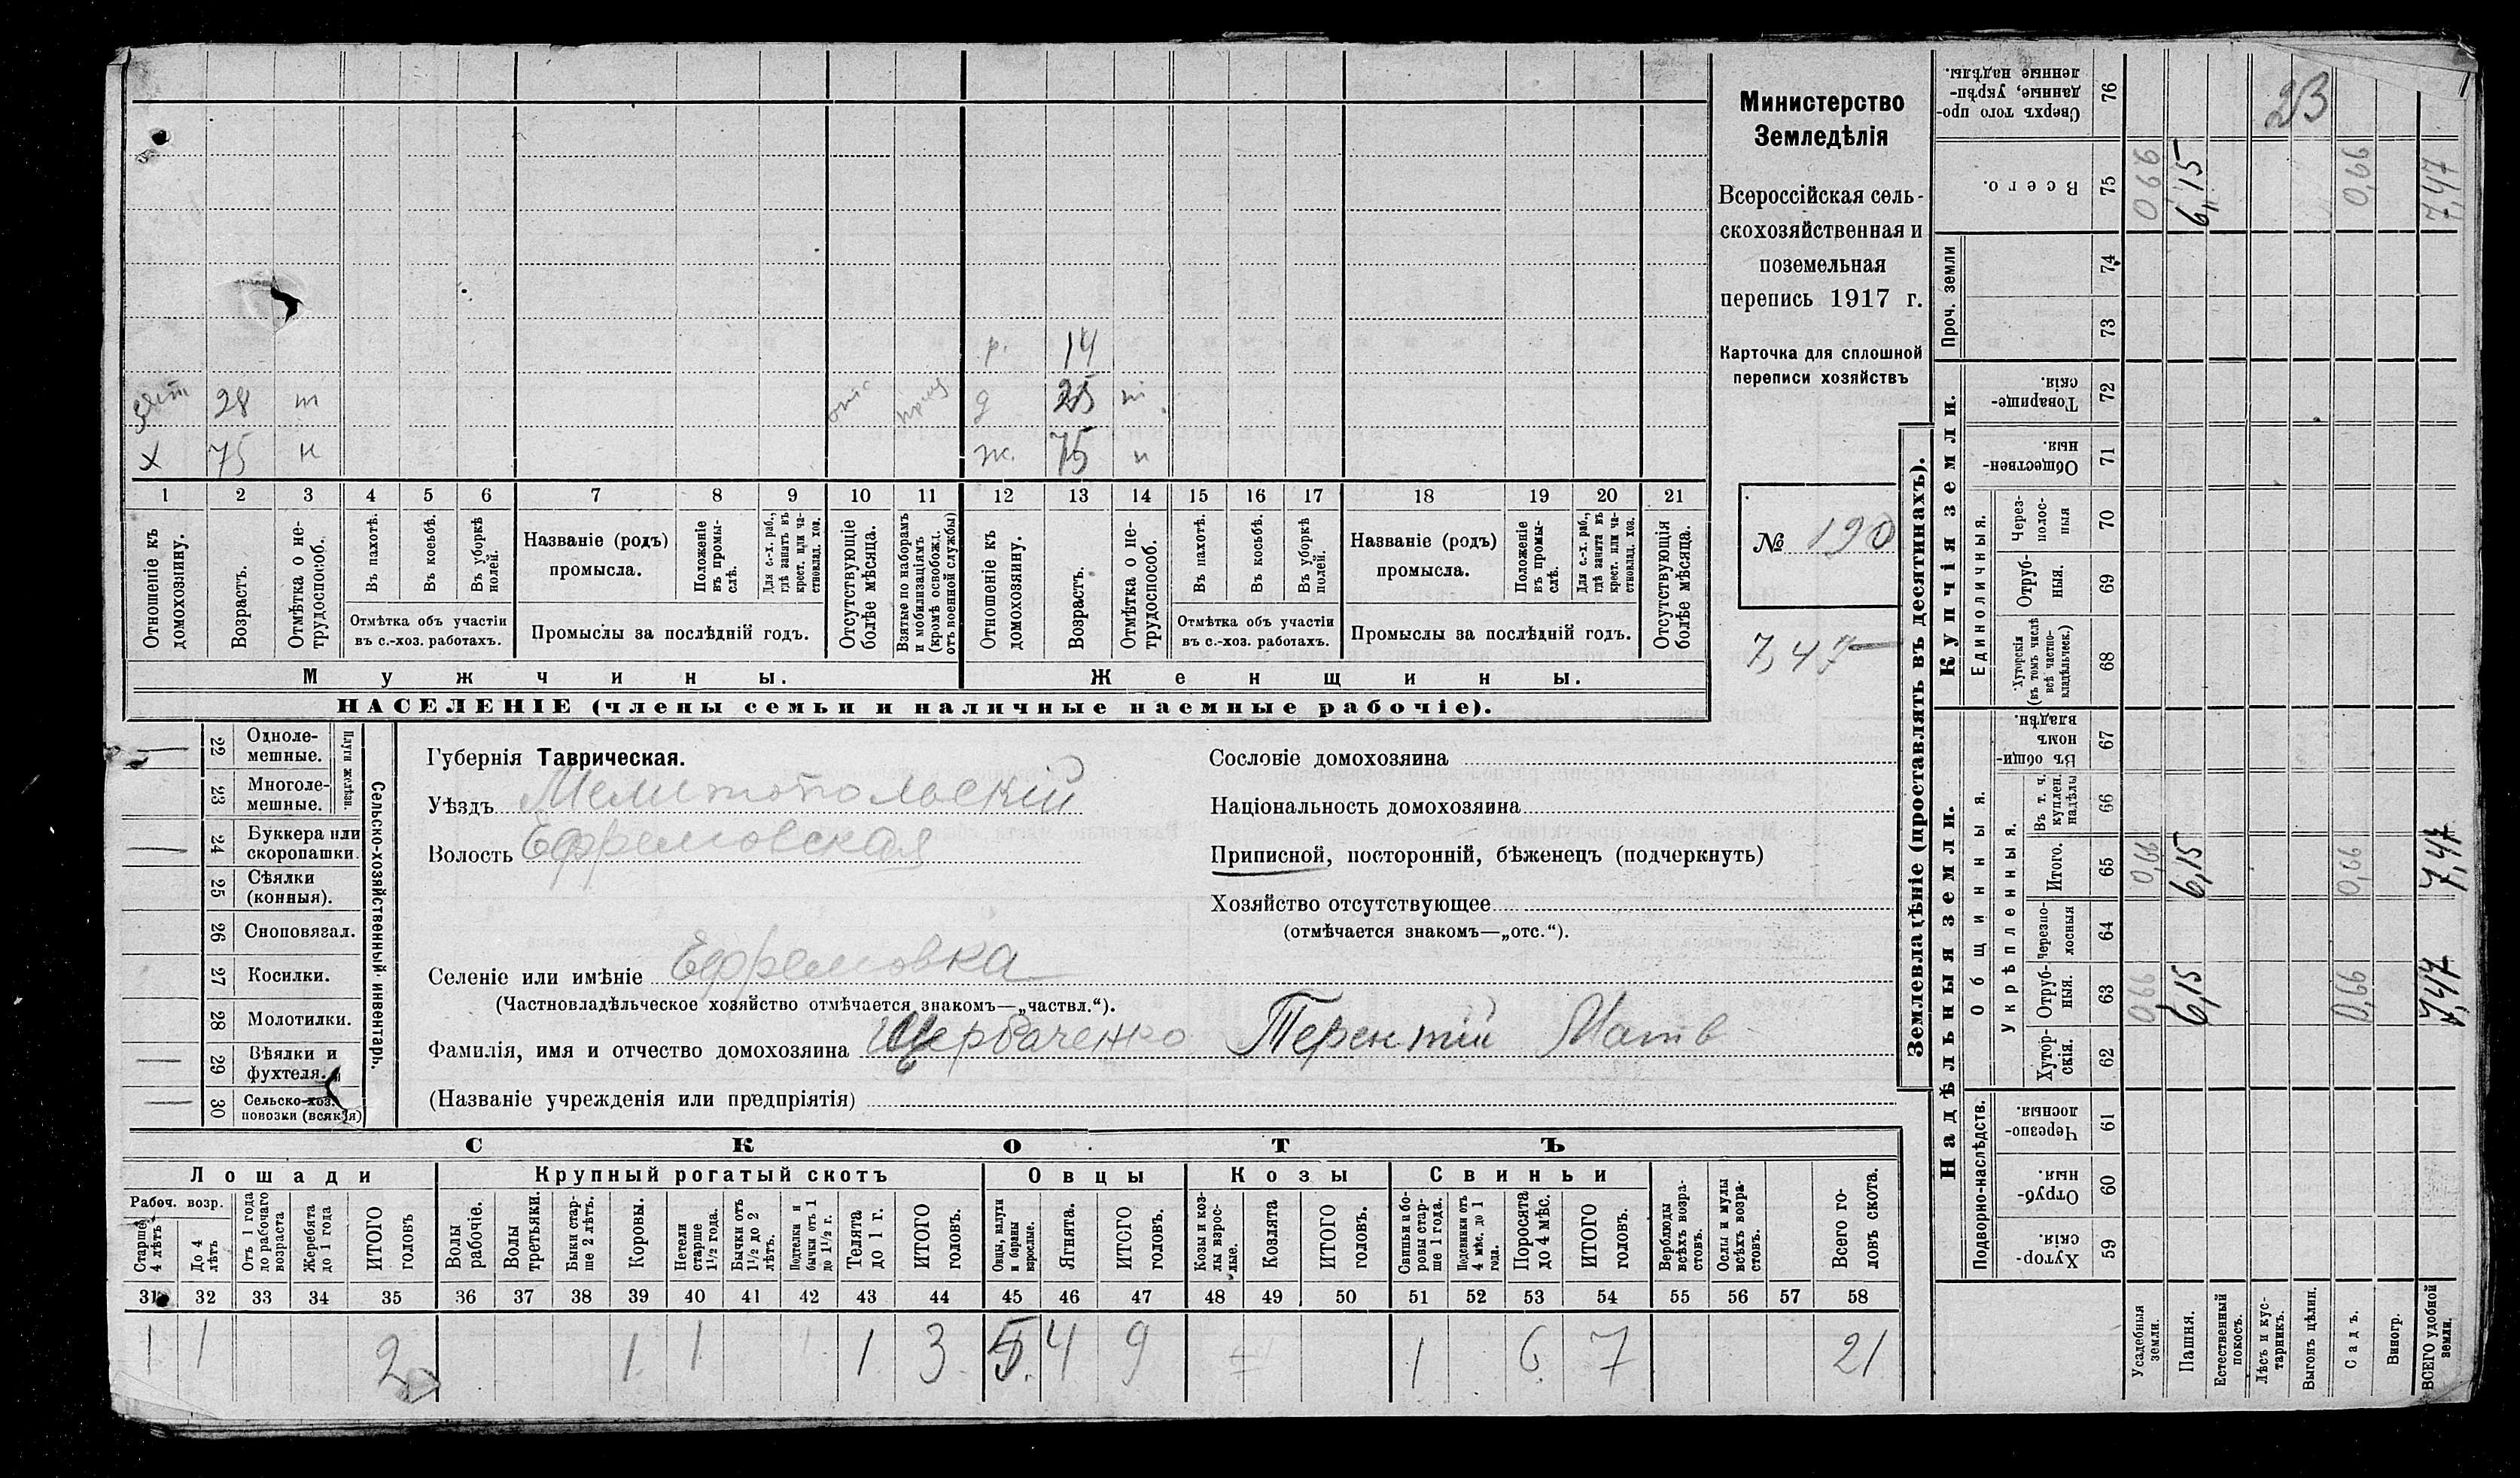 р. 14
28 т д 25 т
х 75 н ж. 75 н
1 2 3 4 5 6 7 8 9 10 11 12 13 14 15 16 17 18 19 20 21
Отношеніе къ домохозяину.
Возрастъ.
Отмѣтка о не-трудоспособ.
Въ пахотѣ.
Въ косьбѣ.
Въ уборкѣ полей.
Отмѣтка объ участіи
въ с.-хоз. работахъ.
Названіе (родъ)
промысла.
Положеніе въ промы-слѣ.
Для с.-х. раб., гдѣ занятъ въ крест. или ча-стновлад. хоз.
Промыслы за послѣдній годъ.
Отсутствующіе болѣе мѣсяца.
Взятые по наборамъ и мобилизаціямъ (кромѣ освобожд. отъ военной службы)
Отношеніе къ домохозяину.
Возрастъ.
Отмѣтка о не-трудоспособ.
Въ пахотѣ.
Въ косьбѣ.
Въ уборкѣ полей.
Отмѣтка объ участіи
въ с.-хоз. работахъ.
Названіе (родъ)
промысла.
Положеніе въ промы-слѣ.
Для с.-х. раб., гдѣ занята въ крест. или ча-стновлад. хоз.
Промыслы за послѣдній годъ.
Отсутствующія болѣе мѣсяца.
Мужчины. Женщины.
НАСЕЛЕНІЕ (члены семьи и наличные наемные рабочіе).
Министерство
Земледѣлія
Всероссійская сель-
скохозяйственная и
поземельная
перепись 1917 г.
Карточка для сплошной
переписи хозяйствъ
№ 190
7,47
22 Однолемешные.
23 Многолемешные.
Плуги желѣзн.
24 Буккера или скоропашки.
25 Сѣялки (конныя).
26 Сноповязал.
27 Косилки.
28 Молотилки.
29 Вѣялки и фухтеля.
30 Сельско-хоз. повозки (всякія)
Сельско-хозяйственный инвентарь.
Губернія Таврическая.
Уѣздъ Мелитопольскій
Волость Ефремовская
Селеніе или имѣніе Ефремовка
(Частновладѣльческое хозяйство отмѣчается знакомъ—„частвл.“).
Фамилія, имя и отчество домохозяина Щербаченко Терентій Матв
(Названіе учрежденія или предпріятія)
Сословіе домохозяина
Національность домохозяина
Приписной, посторонній, бѣженецъ (подчеркнуть)
Хозяйство отсутствующее
(отмѣчается знакомъ—„отс.“).
СКОТЪ
Лошади Крупный рогатый скотъ Овцы Козы Свиньи
Рабоч. возр.
Старше 4 лѣтъ
До 4 лѣтъ
Отъ 1 года до рабочаго возраста
Жеребята до 1 года
ИТОГО головъ
Волы рабочіе.
Волы третьяки.
Быки стар-ше 2 лѣтъ.
Коровы.
Нетели старше 1½ года.
Бычки отъ 1½ до 2 лѣтъ.
Подтелки и бычки отъ 1 до 1½ г.
Телята до 1 г.
ИТОГО головъ.
Овцы, валухи и бараны взрослые.
Ягнята.
ИТОГО головъ.
Козы и коз-лы взрос-лые.
Козлята
ИТОГО головъ.
Свиньи и бо-ровы стар-ше 1 года.
Подсвинки отъ 4 мѣс. до 1 года.
Поросята до 4 мѣс.
ИТОГО головъ.
Верблюды всѣхъ возра-стовъ.
Ослы и мулы всѣхъ возра-стовъ.
Всего го-ловъ скота.
31 32 33 34 35 36 37 38 39 40 41 42 43 44 45 46 47 48 49 50 51 52 53 54 55 56 57 58
1 1 2 1 1 1 3 5 4 9 1 6 7 21
Землевладѣніе (проставлять въ десятинахъ).
Надѣльныя земли. Купчія земли.
Проч. земли
Подворно-наслѣдств.
Общинныя.
Укрѣпленныя.
Единоличныя.
59 Хутор-скія.
60 Отруб-ныя.
61 Черезпо-лосныя.
62 Хутор-скія.
63 Отруб-ныя. 0,66 6,15 0,66 7,47
64 Черезпо-лосныя
65 Итого. 0,66 6,15 0,66 7,47
66 Въ т. ч. куплен. надѣлы
67 Въ общи-номъ владѣн.
68 Хуторскія (въ томъ числѣ всѣ частно-владѣльческ.)
69 Отруб-ныя.
70 Через-полос-ныя
71 Обществен-ныя.
72 Товарище-скія.
73
74
75 Всего. 0 66 6,15 0,66 7,47
76 Сверхъ того про-данные, укрѣп-ленные надѣлы.
23
Усадебныя земли.
Пашня.
Естественный покосъ.
Лѣсъ и кус-тарникъ.
Выгонъ цѣлин.
Садъ.
Виногр.
ВСЕГО удобной земли.